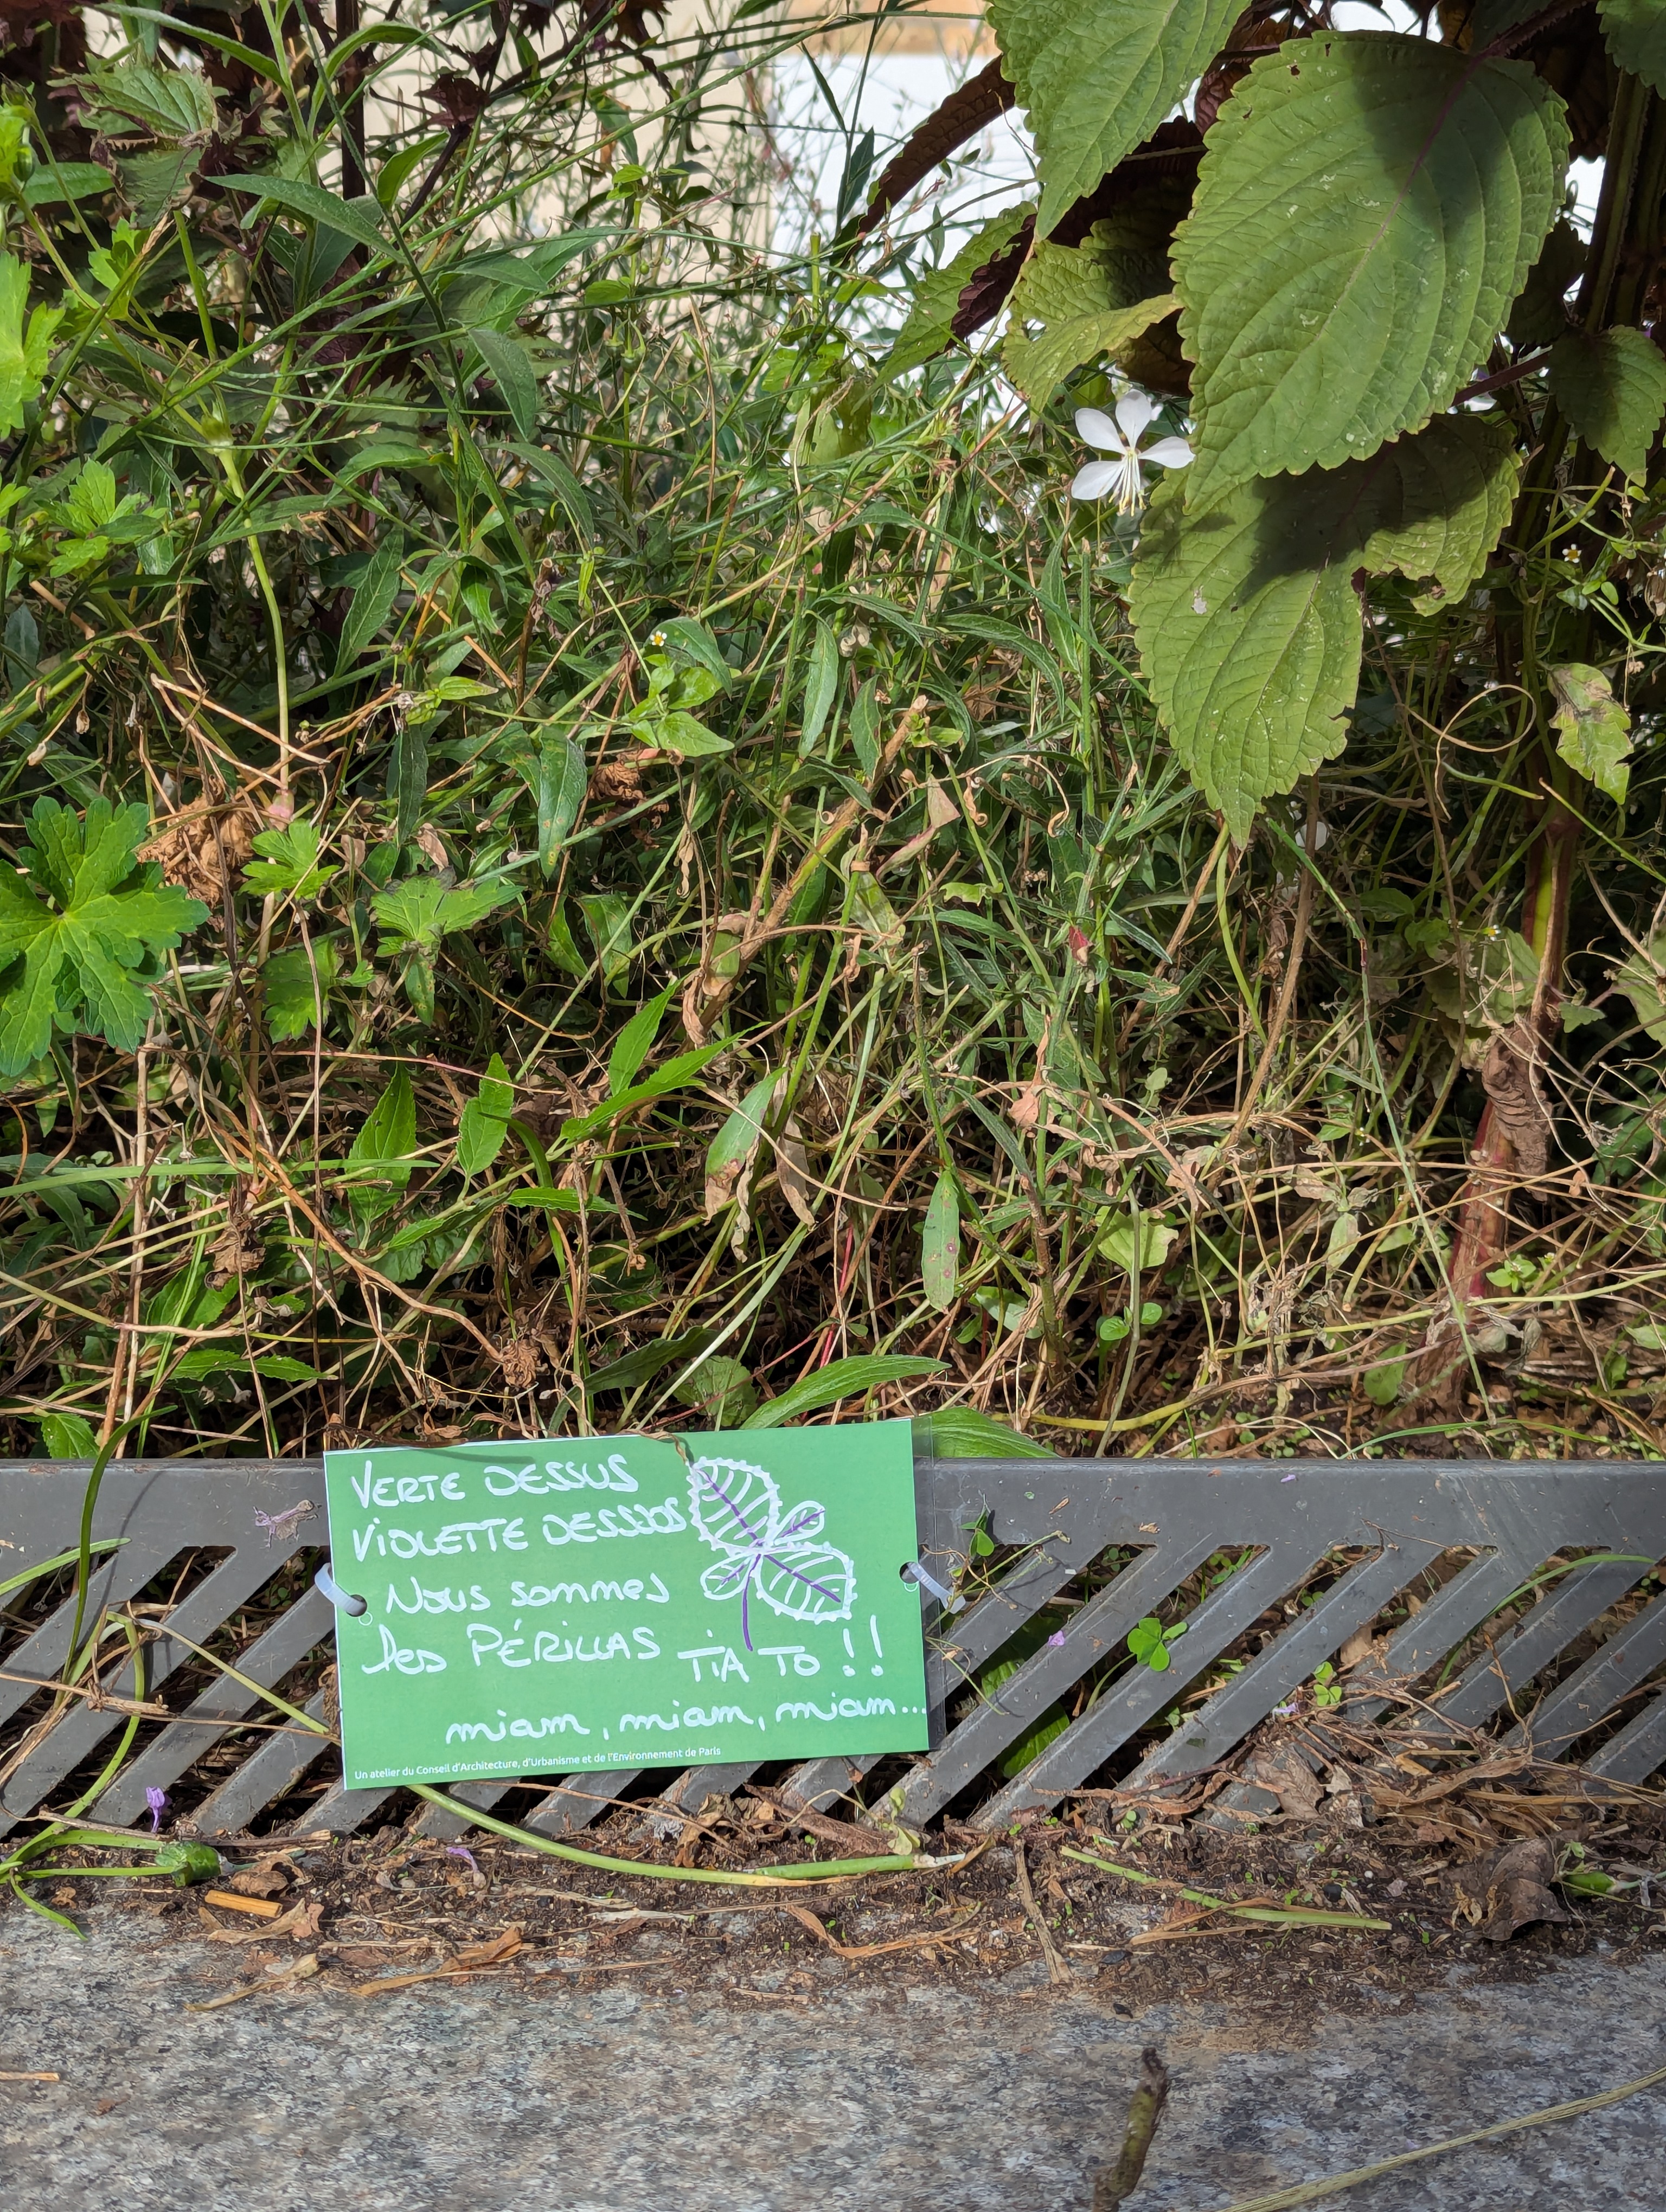 VERTE DESSUS
VIOLETTE DESSOUS
Nous sommes
les PÉRILLAS TIA TO !!
miam, miam, miam...
Un atelier du Conseil d'Architecture, d'Urbanisme et de l'Environnement de Paris